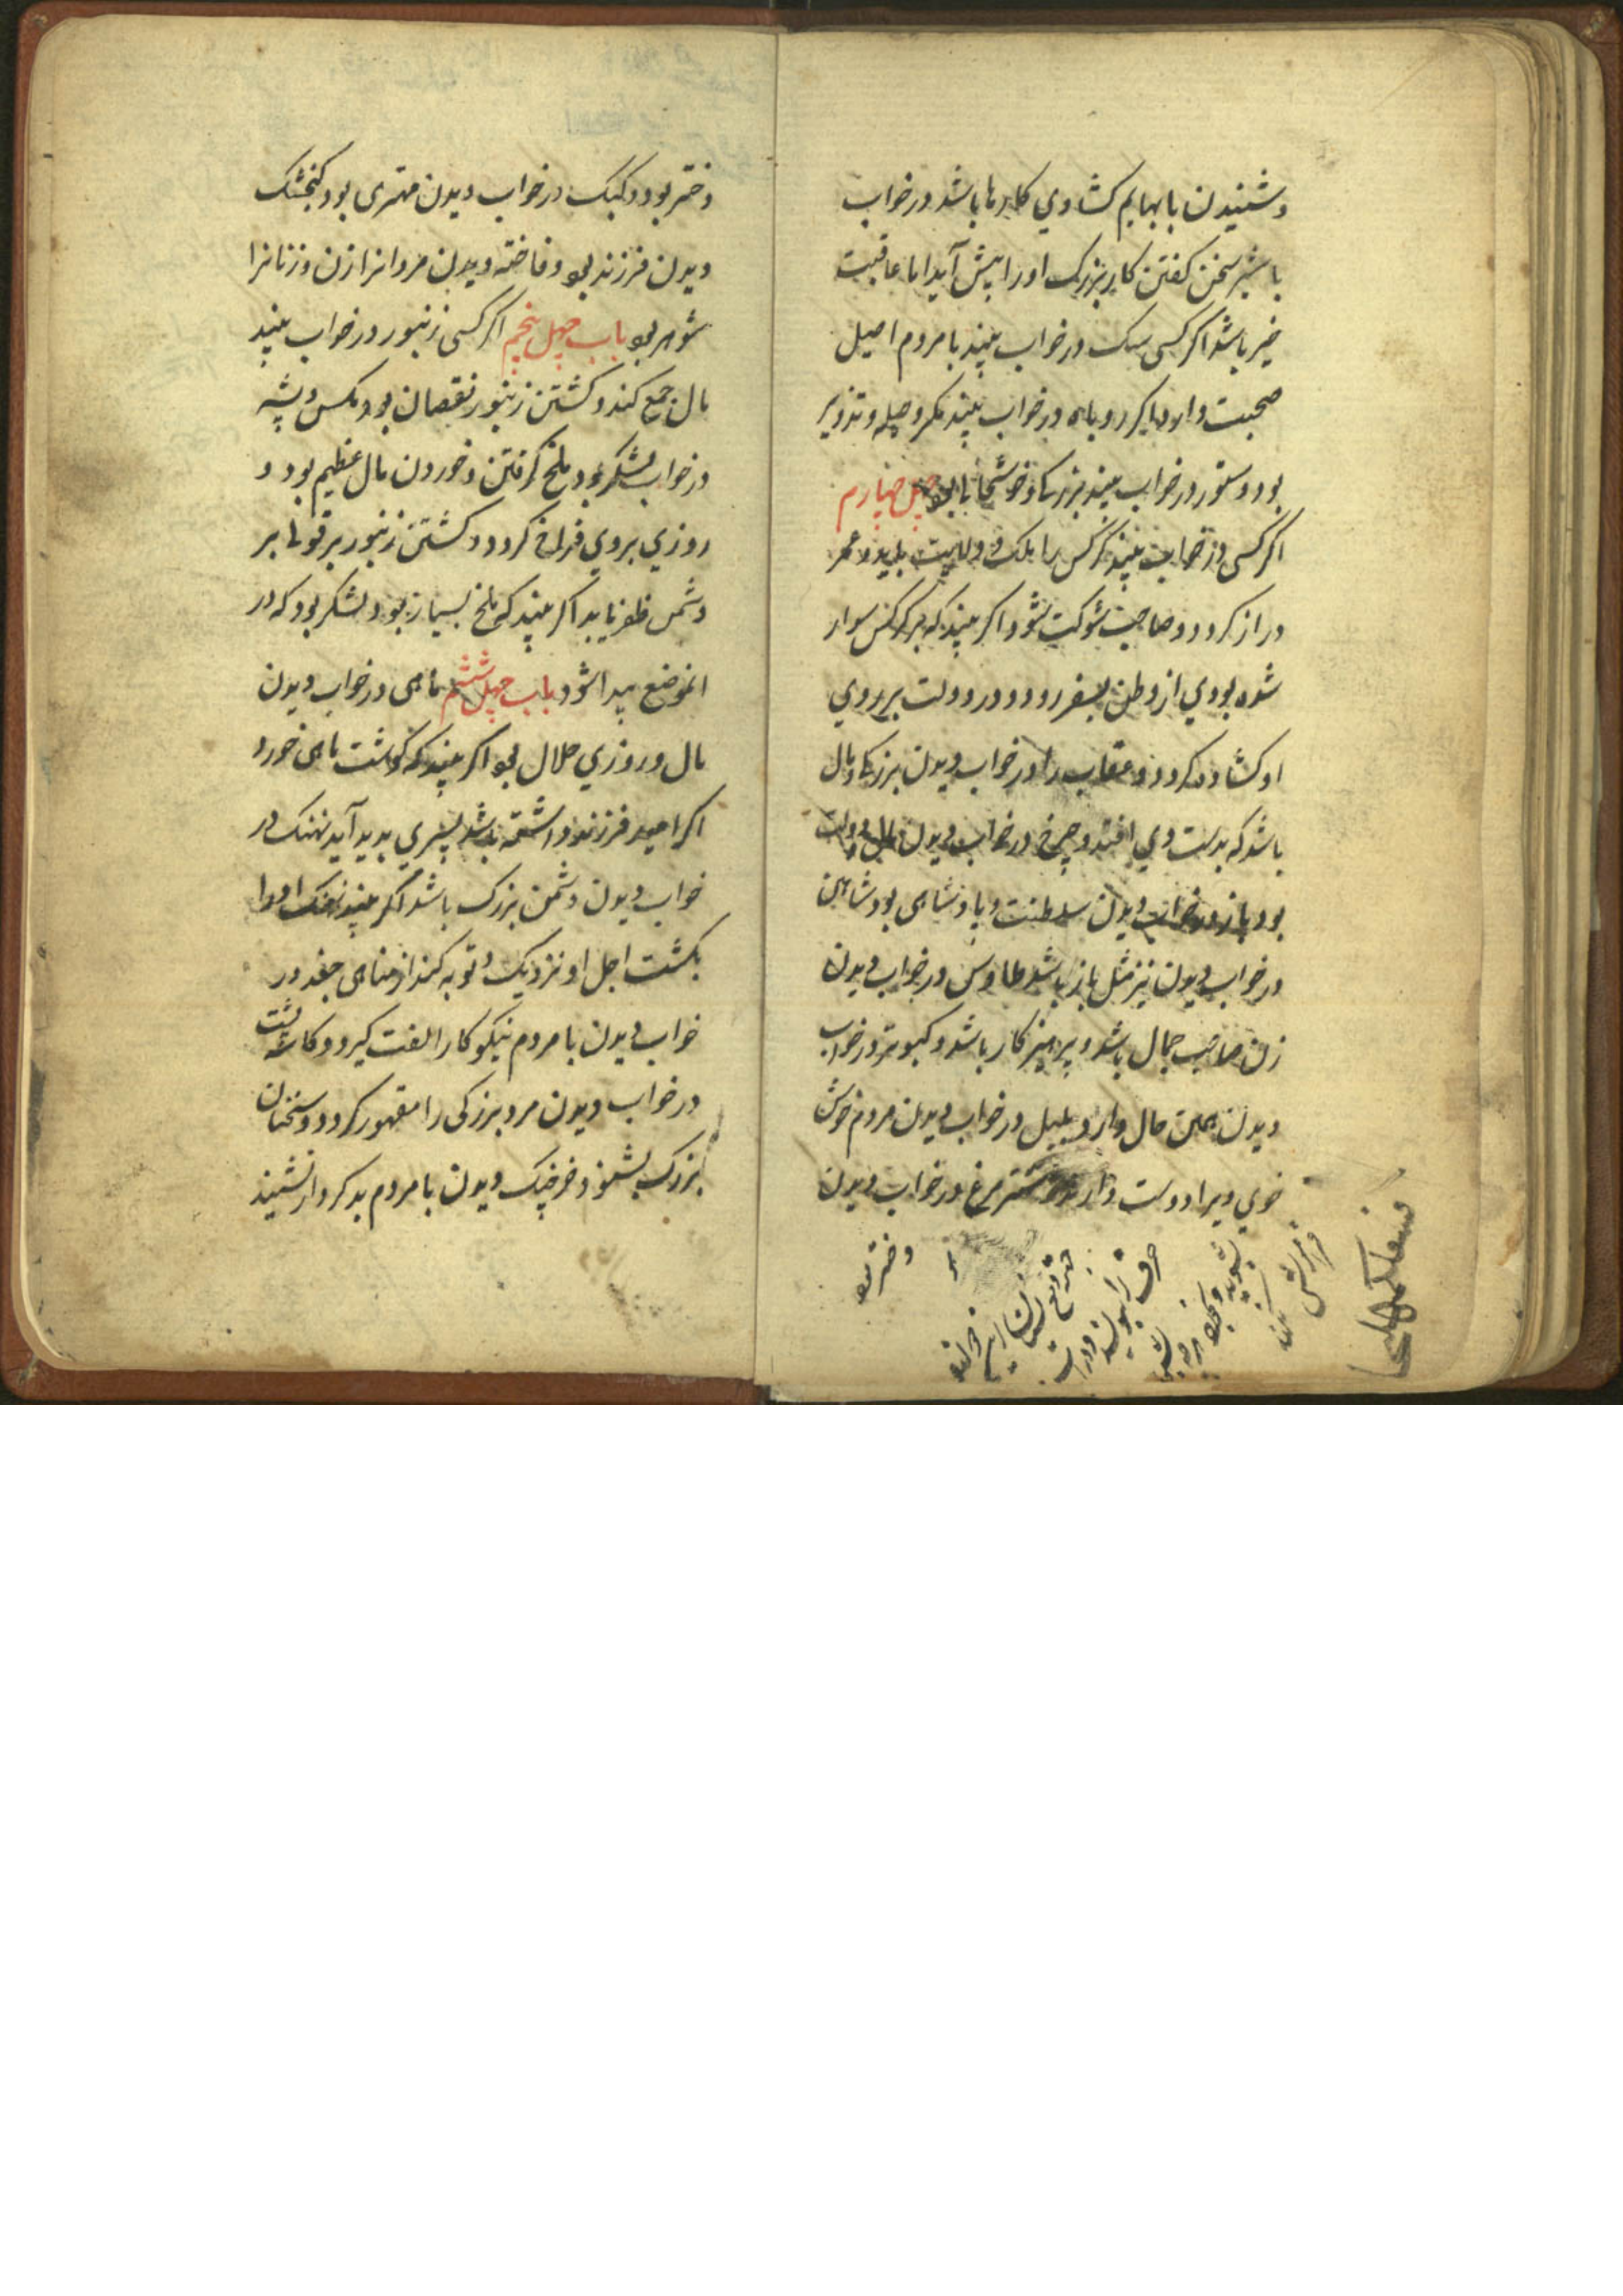 و شنیدن با بهایم کشادی کارها باشد در خواب
با شیر سخن کفتن کار بزرک او را پیش آید اما عاقبت
خیر باشد اکر کسی سک در خواب بیند با مردم اصیل
صحبت دارد اکر روباه در خواب بیند مکر و حیله و تزویر
بود و ستور در خواب بیند بزرکی و خوشی باب چهل چهارم
اکر کسی در خواب بیند کرکس را ملک و ولایت یابد و عمر
دراز کردد و صاحب شوکت شود اکر بیند که بر کرکس سوار
شده بودی از وطن بسفر رود و در دولت بر روی
او کشاده کردد و عقاب را در خواب دیدن بزرکی و مال
باشد که بدست وی افتد و چرخ در خواب دیدن مال و دولت
بود باز در خواب دیدن سلطنت و پادشاهی بود شاهین
در خواب دیدن نیز مثل باز باشد طاوس در خواب دیدن
زن صاحب جمال باشد و پرهیز کار باشد و کبوتر در خواب
دیدن همین حال دارد بلبل در خواب دیدن مردم خوش
خوی ویرا دوست دارد شتر مرغ در خواب دیدن
دختر بود
دختر بود و کبک در خواب دیدن مهتری بود کنجشک
دیدن فرزند بود و فاخته دیدن مردانرا زن و زنانرا
شوهر بود باب چهل پنجم اکر کسی زنبور در خواب بیند
مال جمع کند و کشتن زنبور نقصان بود و مکس و پشه
در خواب لشکر بود ملخ کرفتن و خوردن مال عظیم بود و
روزی بروی فراخ کردد و کشتن زنبور بر قوت بر
دشمن ظفر یابد اکر بیند که ملخ بسیار بود لشکر بود که در
انموضع پیدا شود باب چهل ششم ماهی در خواب دیدن
مال و روزی حلال بود اکر بیند که کوشت ماهی خورد
اکر امید فرزند داشته باشد پسری پدید آید نهنک در
خواب دیدن دشمن بزرک باشد اکر بیند نهنک او را
بکشت اجل او نزدیک و توبه کند از مناهی جغد در
خواب دیدن با مردم نیکو کار الفت کیرد و کاسه پشت
در خواب دیدن مرد بزرکی را مقهور کردد و سخنان
بزرک بشنود خرچنک دیدن با مردم بد کردار نشیند